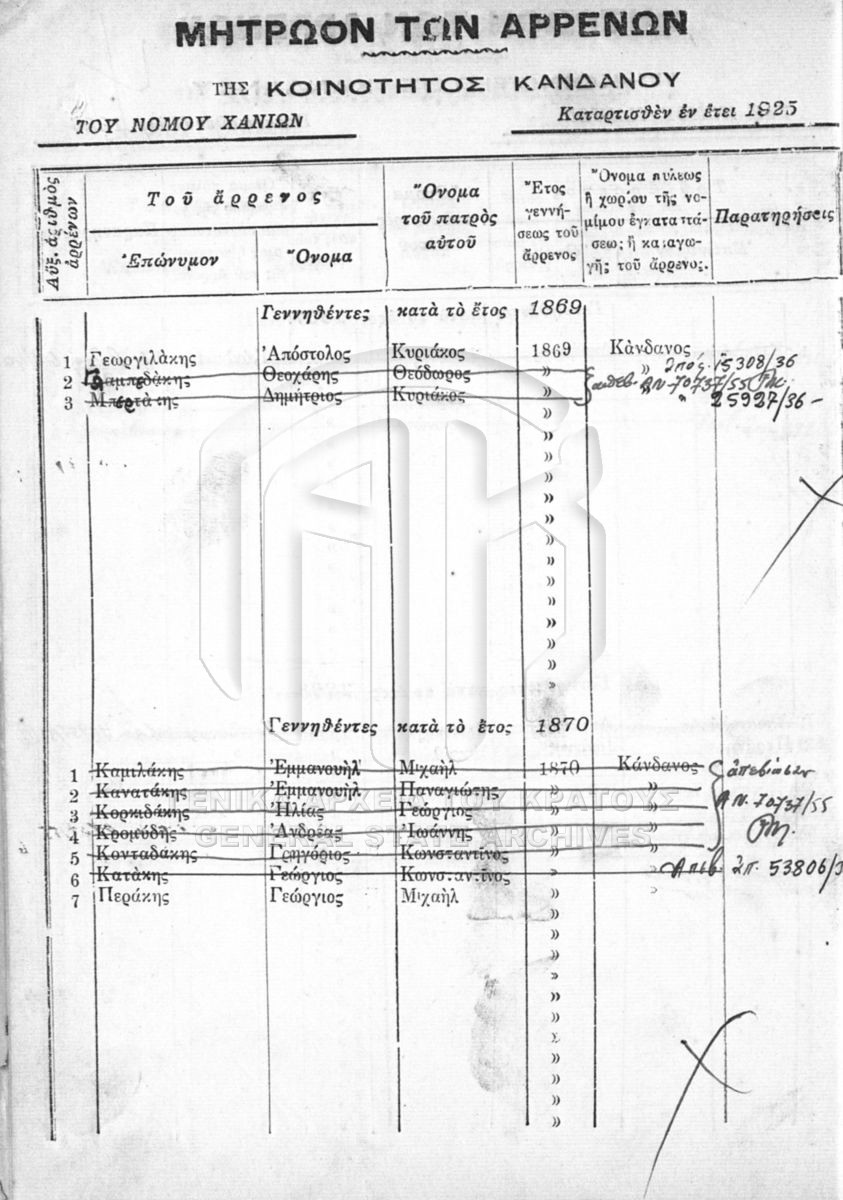 ΜΗΤΡΩΟΝ ΤΩΝ ΑΡΡΕΝΩΝ
ΤΗΣ ΚΟΙΝΟΤΗΤΟΣ ΚΑΝΔΑΝΟΥ
ΤΟΥ ΝΟΜΟΥ ΧΑΝΙΩΝ
Καταρτισθὲν ἐν ἔτει 1925
Αὔξ. ἀριθμὸς ἀρρένων
Τοῦ ἄρρενος
Ἐπώνυμον
Ὄνομα
Ὄνομα
τοῦ πατρὸς
αὐτοῦ
Ἔτος
γεννή-
σεως τοῦ
ἄρρενος
Ὄνομα πόλεως
ἢ χωρίου τῆς νο-
μίμου ἐγκαταστά-
σεως ἢ καταγω-
γῆς τοῦ ἄρρενος.
Παρατηρήσεις
Γεννηθέντες κατὰ τὸ ἔτος 1869
1 Γεωργιλάκης Ἀπόστολος Κυριάκος 1869 Κάνδανος
2 Γαμπεδάκης Θεοχάρης Θεόδωρος » » 15308/36
ΑΝ. 70737/55
3 Μπερτάκης Δημήτριος Κυριάκος » » 25927/36 -
»
»
»
»
»
»
»
»
»
»
»
»
»
»
Γεννηθέντες κατὰ τὸ ἔτος 1870
1 Καμιλάκης Ἐμμανουὴλ Μιχαὴλ 1870 Κάνδανος ἀπεβίωσαν
2 Κανατάκης Ἐμμανουὴλ Παναγιώτης » »
3 Κορκιδάκης Ἠλίας Γεώργιος » » ΑΝ. 70737/55
4 Κρομύδης Ἀνδρέας Ἰωάννης » »
5 Κονταδάκης Γρηγόριος Κωνσταντῖνος » »
6 Κατάκης Γεώργιος Κωνσταντῖνος » Απεβ. ἀπ. 53806/3
7 Περάκης Γεώργιος Μιχαὴλ » »
»
»
»
»
»
»
»
»
»
»
»
ΓΕΝΙΚΑ ΑΡΧΕΙΑ ΤΟΥ ΚΡΑΤΟΥΣ
GENERAL STATE ARCHIVES